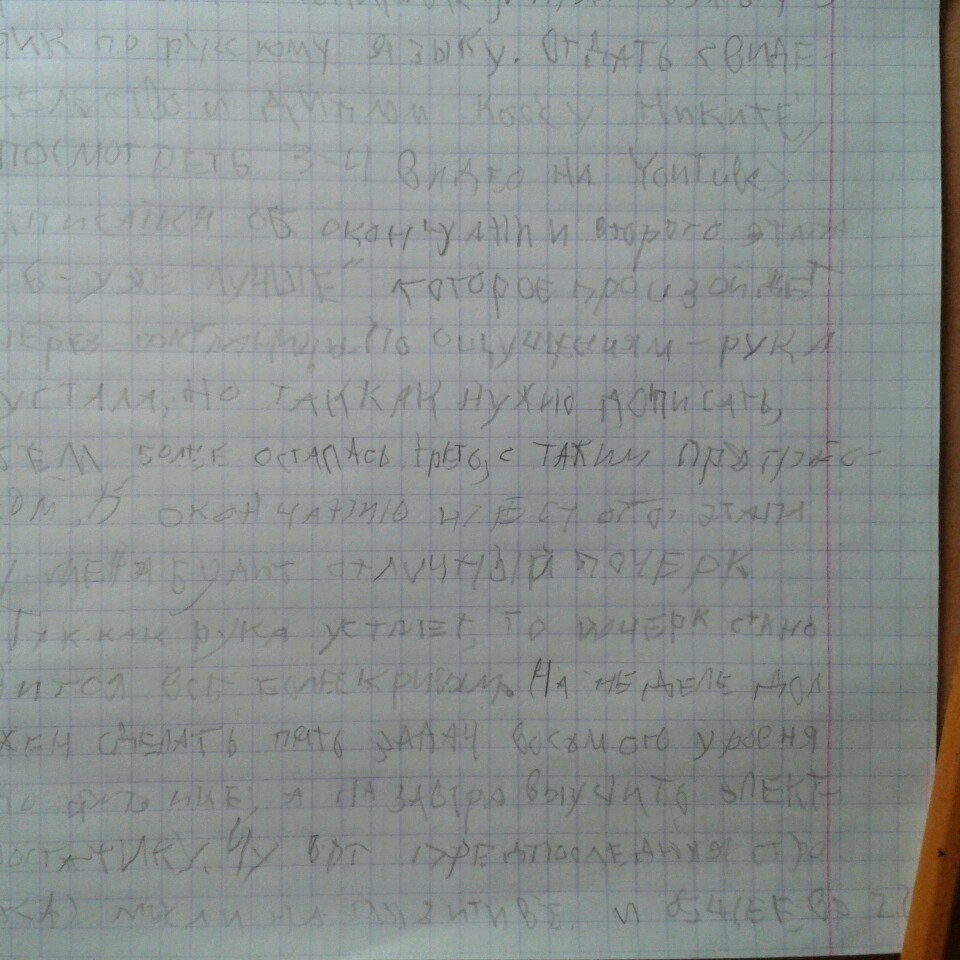 рик по русскому языку. Отдать свиде-
тельство и диплом Никите,
посмотреть 3-4 видео на YouTube,
об окончании второго этапа
6 - уже лучше" которое произойдет
через По ощущениям - рука
устала, но так как нужно дописать,
тем более осталась треть, с таким прогрес-
сом, к окончанию шестого этапа
у меня будет отличный почерк
Так как рука устает, то почерк стано
вится всё более кривым. На неделе дол
жен сделать пять задач восьмого уровня
по физике, а на завтра выучить элект-
ростатику. Ну вот предпоследняя стро
ка) на позитиве. И